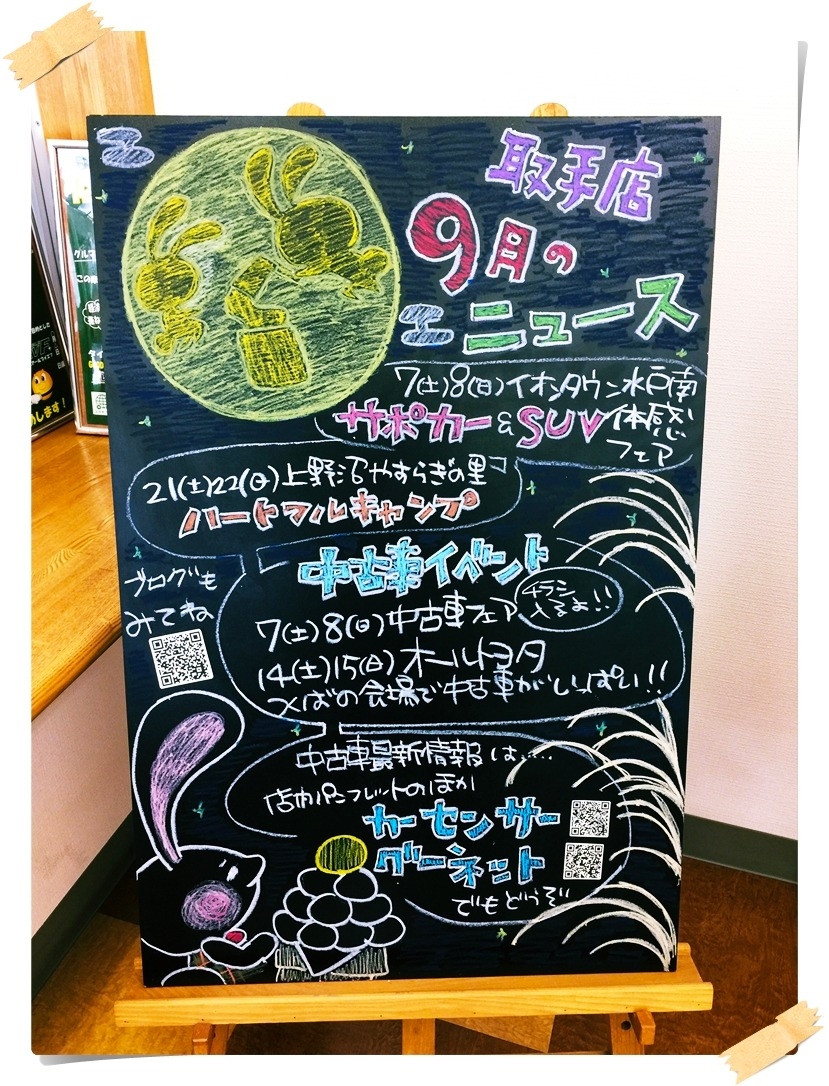 取手店
9月の
ニュース
7(土)8(日)イオンタウン水戸南
サポカー&SUV体感
フェア
21(土)22(日)上野沼やすらぎの里
ハートフルキャンプ
中古車イベント
チラシ
入るよ!!
7(土)8(日)中古車フェア
14(土)15(日)オールトヨタ
つくばの会場で中古車がいっぱい!!
ブログも
みてね
中古車最新情報は……
店内パンフレットのほか
カーセンサー
グーネット
でもどうぞ
します!